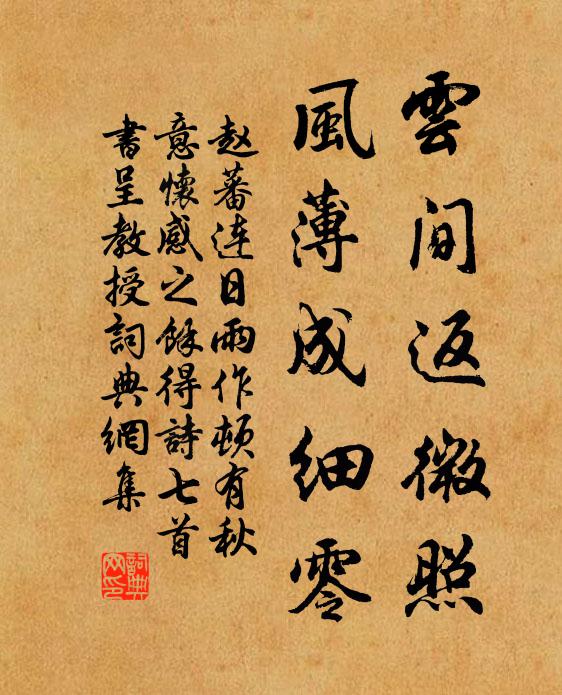 雲間返微照
風薄成細零
赵蕃连日雨作頓有秋
意懷感之餘得詩七首
書呈教授詞典網集
詞典网印